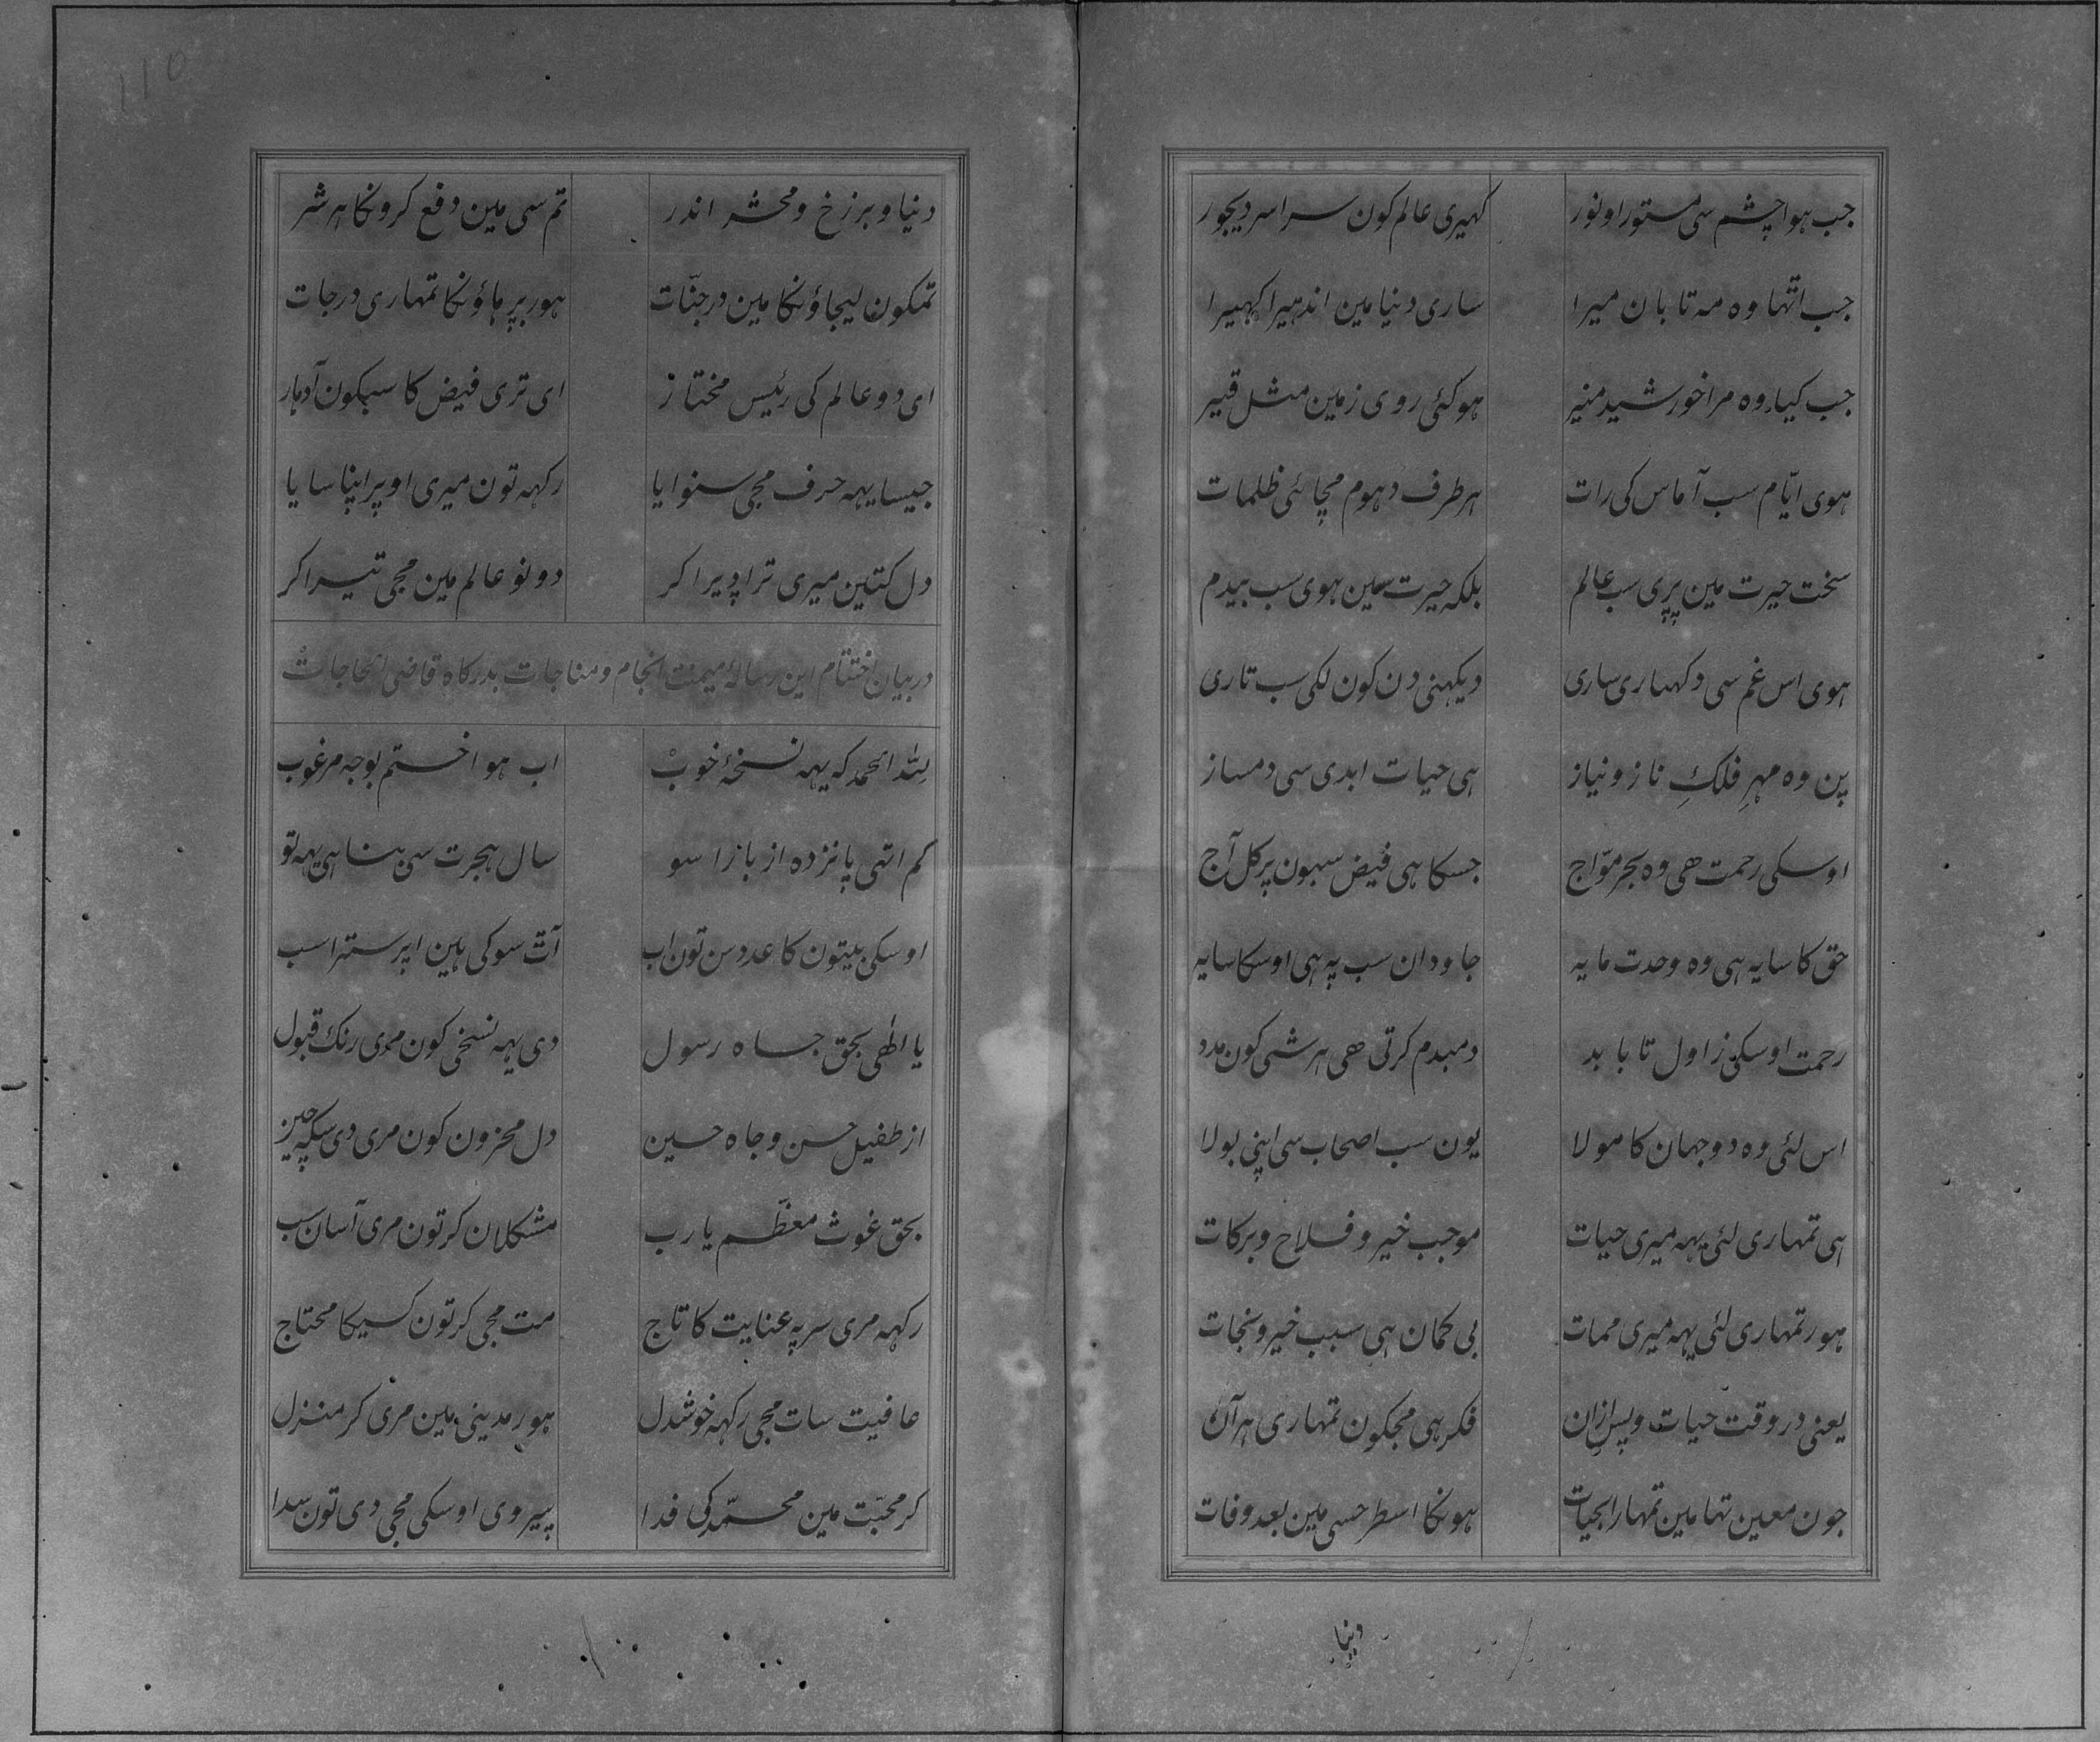 جب ہوا چشم سی مستور او نور
کہیری عالم کون سراسر دیجور
جب اتہا وہ مہ تابان میرا
ساری دنیا مین اندہیرا کہیرا
جب کیا وہ مرا خورشید منیر
ہوکئی روی زمین مثل قیر
ہوی ایّام سب آماس کی رات
ہر طرف دہوم مچائی ظلمات
سخت حیرت مین پری سب عالم
بلکہ حیرت سین ہوی سب بیدم
ہوی اس غم سی دکہیاری ساری
دیکہنی دن کون لکی سب تاری
پن وہ مہرِ فلکِ ناز و نیاز
ہی حیات ابدی سی دمساز
اوسکی رحمت ھی وہ بحر موّاج
جسکا ہی فیض سبہون پر کل آج
حق کا سایہ ہی وہ وحدت مایہ
جاودان سب پہ ہی اوسکا سایہ
رحمت اوسکی ز اول تا بابد
دمبدم کرتی ھی ہر شی کون مدد
اس لئی وہ دو جہان کا مولا
یون سب اصحاب سی اپنی بولا
ہی تمہاری لئی یہہ میری حیات
موجب خیر و فلاح و برکات
ہور تمہاری لئی یہہ میری ممات
بی کمان ہی سبب خیر و نجات
یعنی در وقت حیات و پس ازان
فکر ہی مجکون تمہاری ہر آن
جون معین تہا مین تمہارا بحیات
ہونکا اسطرحسی مین بعد وفات
دنیا
۱۱۵
دنیا و برزخ و محشر اندر
تم سی مین دفع کرونکا ہر شر
تمکون لیجاؤنکا مین در جنّات
ہور برہاؤنکا تمہاری درجات
ای دو عالم کی رئیس مختار
ای تری فیض کا سبکون آدہار
جیسا یہہ حرف مجی سنوایا
رکہہ تون میری اوپر اپنا سایا
دل کتین میری ترا دیرا کر
دونو عالم مین مجی تیرا کر
در بیان اختتام این رسالۂ میمنت انجام و مناجات بدرکاہ قاضی الحاجات
للّہ الحمد کہ یہہ نسخۂ خوب
اب ہوا ختم بوجہ مرغوب
کم اتہی پانزده از بارا سو
سال ہجرت سی بنا ہی یہہ تو
اوسکی بیتون کا عدد سن تون اب
آت سو کی ہین اپر ستر اسب
یا الٰھی بحق جاہ رسول
دی یہہ نسخی کون مری رنک قبول
از طفیل حسن و جاہ حسین
دل محزون کون مری دی سکہہ چین
بحق غوث معظّم یا رب
مشکلان کر تون مری آسان سب
رکہہ مری سر پہ عنایت کا تاج
مت مجی کر تون کسیکا محتاج
عافیت سات مجی رکہہ خوشدل
ہور مدینی مین مری کر منزل
کر محبّت مین محمّد کی فدا
پیروی اوسکی مجی دی تون سدا